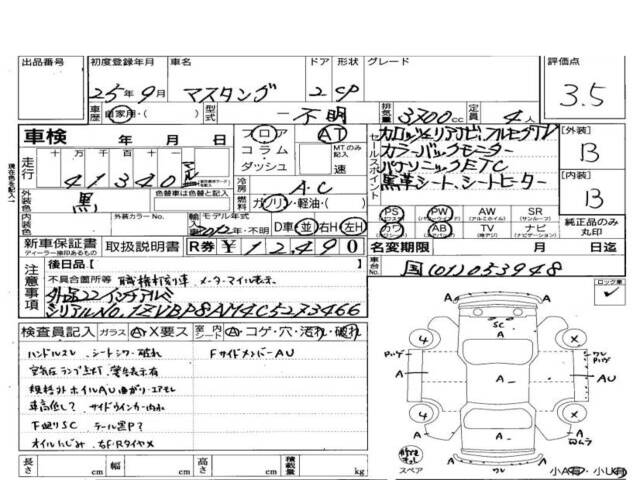 出品番号 初度登録年月 車名 ドア 形状 グレード 評価点
25年9月 マスタング 2 CP 3.5
車歴 自家用・( ) 型式 不明 排気量 3700cc 定員 4人
車検 年 月 日 フロア コラム・ダッシュ AT MTのみ記入 速
セールスポイント
カラーバックモニター
黒革シート、シートヒーター
[外装] B
[内装] B
走行 十万 万 千 百 十
41340
現在色を記入
外装色 黒 色替車は色替と記入
内装色 外装カラーNo. モデル年式 2012年・不明
冷房 A.C
燃料 ガソリン・軽油・( )
D車 並 右H 左H
PS PW AW SR
(パワステ) (パワーウインドウ) (アルミホイル) (サンルーフ)
カワ AB TV ナビ
(エアバッグ) (ナビゲーション)
純正品のみ丸印
新車保証書 ディーラー捺印あるもの 取扱説明書 R券 ¥12,490 名変期限 月 日迄
注意事項
後日品【
不具合箇所等 メーターマイル表示
外品22インチアルミ
シリアルNO.1ZVBP8AM4C5273466
車台No. 国(01)053948
ロック車 ✓
検査員記入 ガラス A・X要ス 室内シート A・コゲ・穴・汚れ・破れ
ハンドルスレ、シートシワ・破れ FサイドメンバーAU
空気圧ランプ点灯、警告表示有
規格外ホイルAU曲がり・エアモレ
車高低し? サイドウインカー内水
下廻りSC テール置P?
オイルにじみ 右F・RタイヤX
長さ cm 幅 cm 高さ cm 積載量 kg
SC
A
4
X
AU
A
スペア
小A有 ・ 小U有